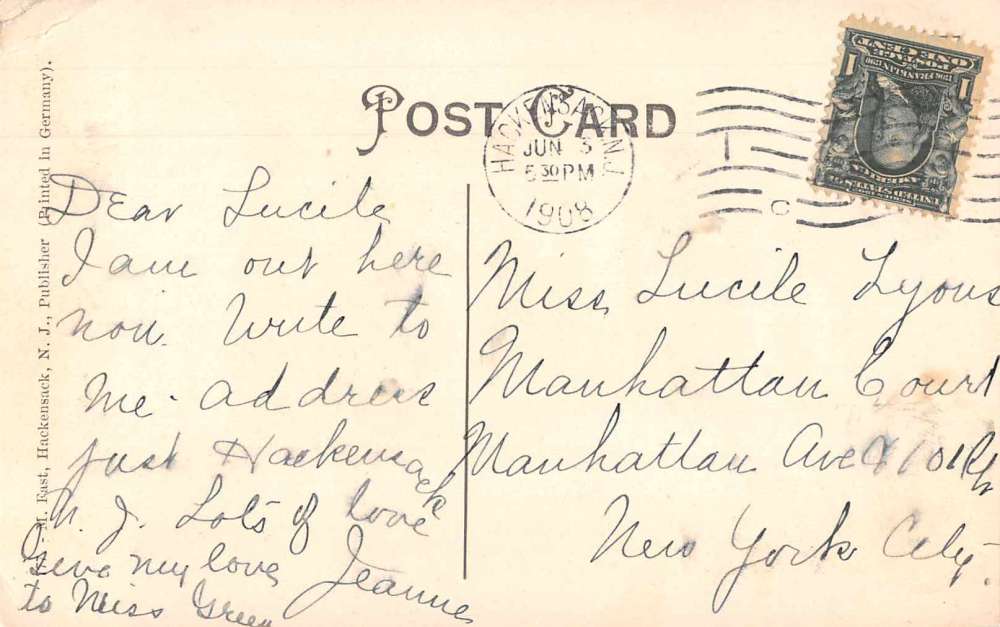 POST CARD
HACKENSACK, N.J.
JUN 3
5 30 PM
1908
1 C
ONE CENT
POSTAGE
1706 FRANKLIN 1790
UNITED STATES OF
AMERICA
M. East, Hackensack, N. J., Publisher (Printed in Germany).
Dear Lucile
I am out here
now. Write to
me. address
just Hackensack
N. J. Lots of love
Jeanne
Give my love
to Miss Green
Miss Lucile Lyons
Manhattan Court
Manhattan Ave & 101st
New York City.